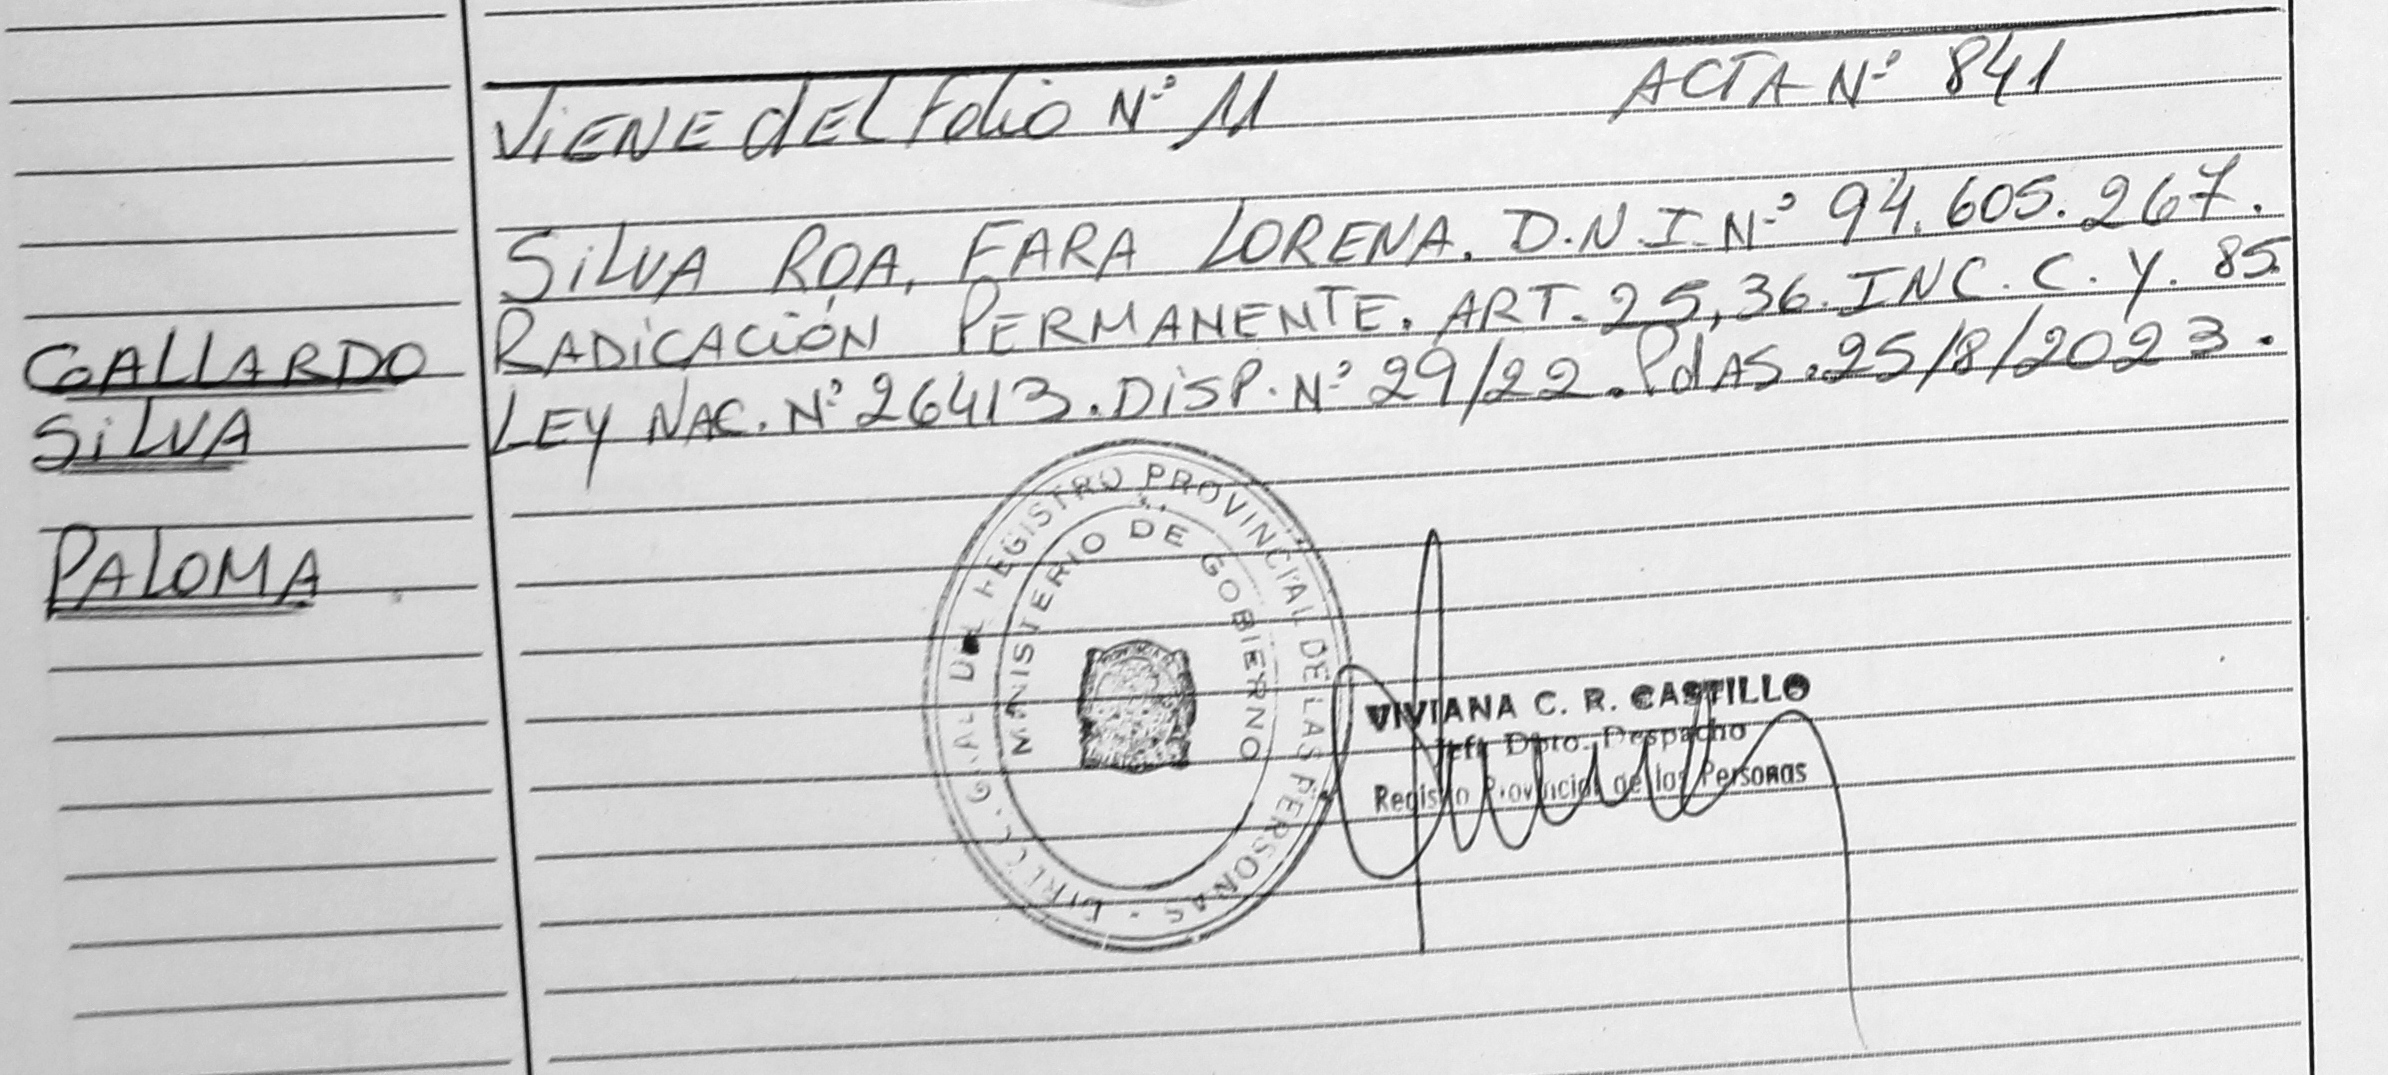 Viene del Folio N° 11 ACTA N° 841
SILVA ROA, FARA LORENA. D.N.I. N° 94.605.267.
RADICACIÓN PERMANENTE. ART. 25, 36. INC. C. Y. 85.
LEY NAC. N° 26413. DISP. N° 29/22. PdAS. 25/8/2023.
GALLARDO
SILVA
PALOMA
REGISTRO PROVINCIAL DE LAS PERSONAS
MINISTERIO DE GOBIERNO
VIVIANA C. R. CASTILLO
Jefe Dpto. Despacho
Registro Provincial de las Personas